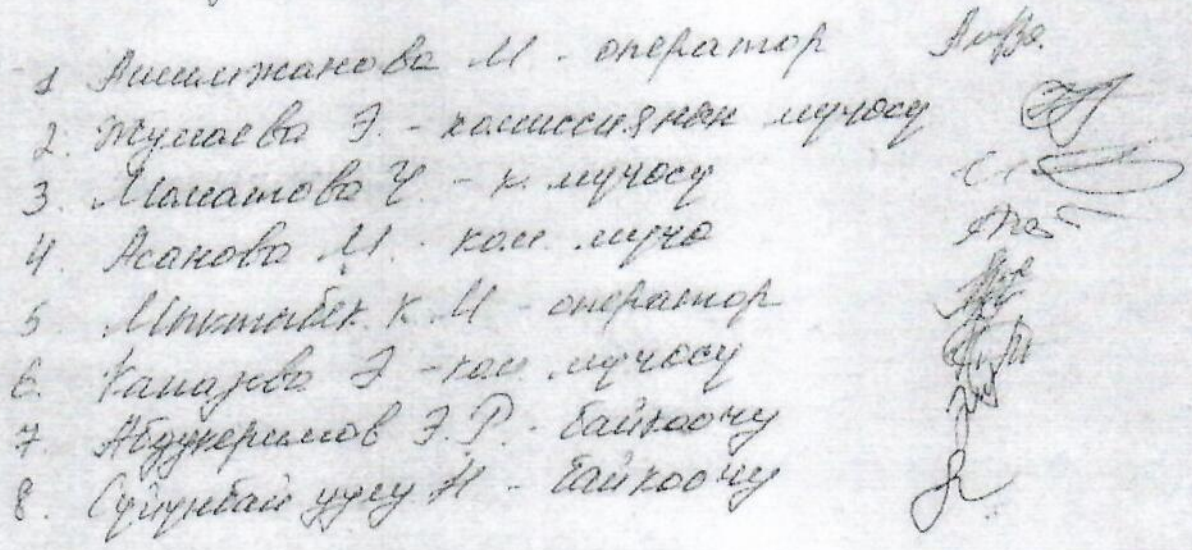 1 Алимжанова М - оператор
2. Жумаева Э. - комиссиянын мүчөсү
3. Маматова Ч. - к. мүчөсү
4. Асанова М. - ком. мүчө
5 Мыктыбек к. М - оператор
6. Э - ком. мүчөсү
7. Абдукеримов Э.Р. - байкоочу
8. Сүйүнбай уулу Н - байкоочу